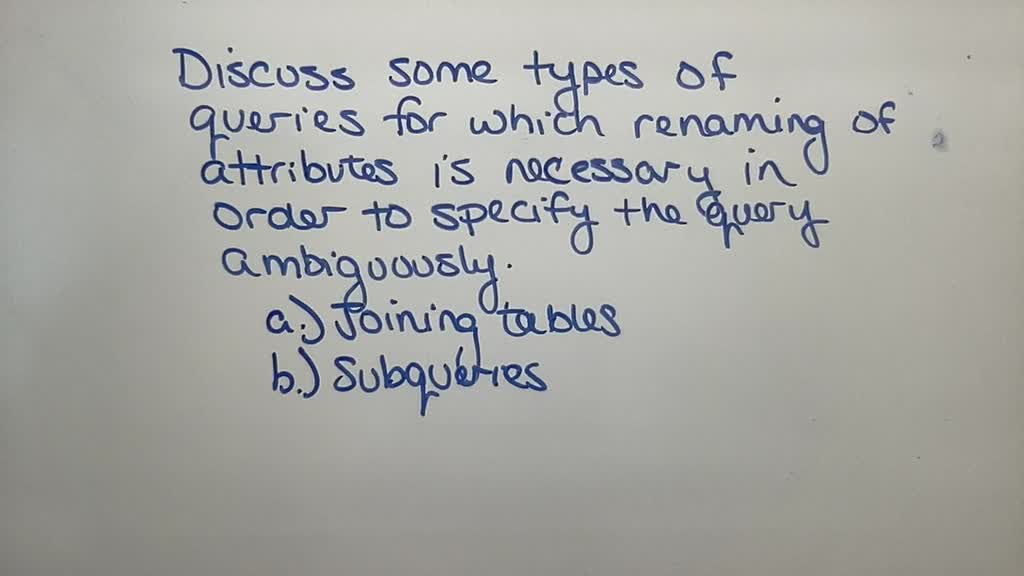 Discuss some types of
queries for which renaming of
attributes is necessary in
order to specify the query
ambiguously.
a.) Joining tables
b.) Subqueries